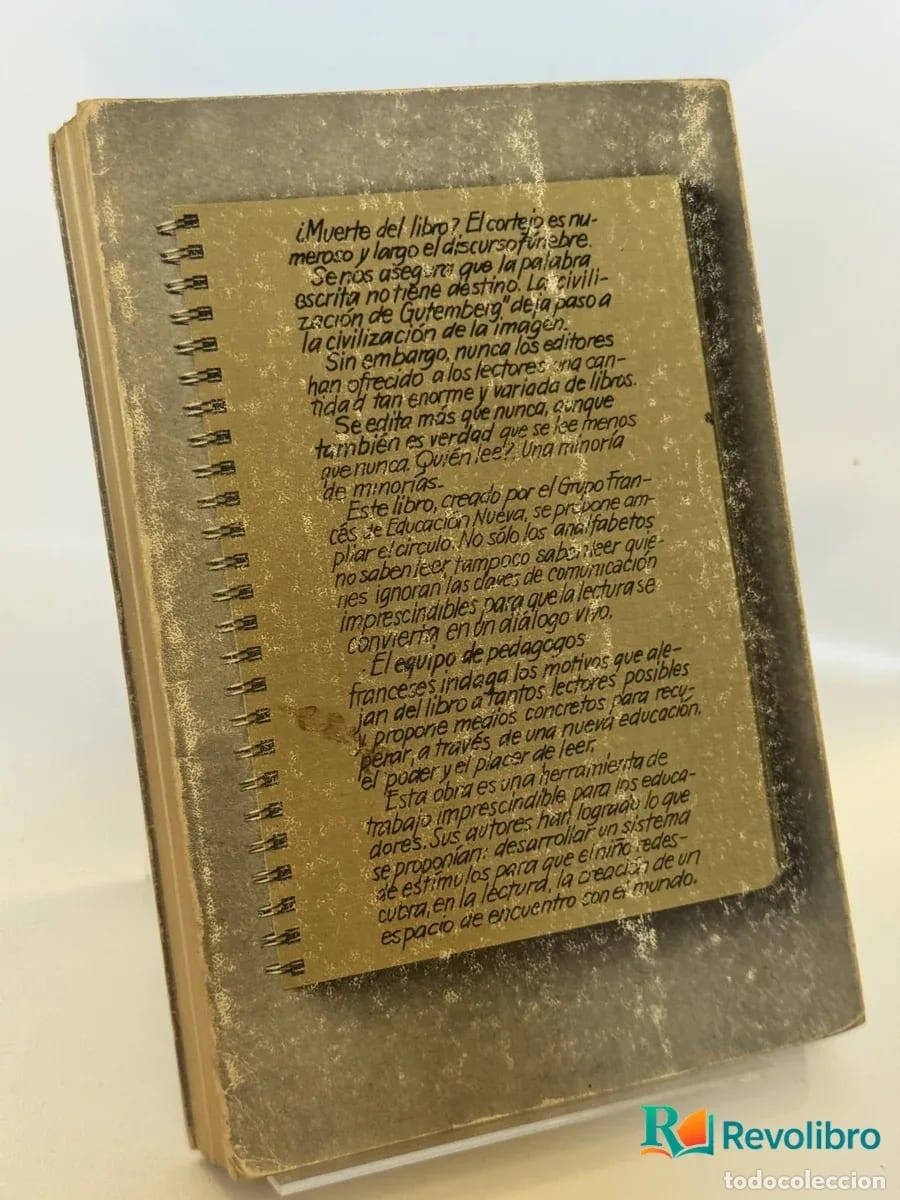 ¿Muerte del libro? El cortejo es nu-
meroso y largo el discurso fúnebre.
Se nos asegura que la palabra
escrita no tiene destino. La "civili-
zación de Gutemberg" deja paso a
la civilización de la imagen.
Sin embargo, nunca los editores
han ofrecido a los lectores una can-
tidad tan enorme y variada de libros.
Se edita más que nunca, aunque
también es verdad que se lee menos
que nunca. Quién lee?. Una minoría
de minorías.
Este libro, creado por el Grupo Fran-
cés de Educación Nueva, se propone am-
pliar el círculo. No sólo los analfabetos
no saben leer, tampoco saben leer quie-
nes ignoran las claves de comunicación
imprescindibles para que la lectura se
convierta en un diálogo vivo.
El equipo de pedagogos
franceses indaga los motivos que ale-
jan del libro a tantos lectores posibles
y propone medios concretos para recu-
perar, a través de una nueva educación,
el poder y el placer de leer.
Esta obra es una herramienta de
trabajo imprescindible para los educa-
dores. Sus autores han logrado lo que
se proponían: desarrollar un sistema
de estímulos para que el niño redes-
cubra, en la lectura, la creación de un
espacio de encuentro con el mundo.
Revolibro
todocoleccion